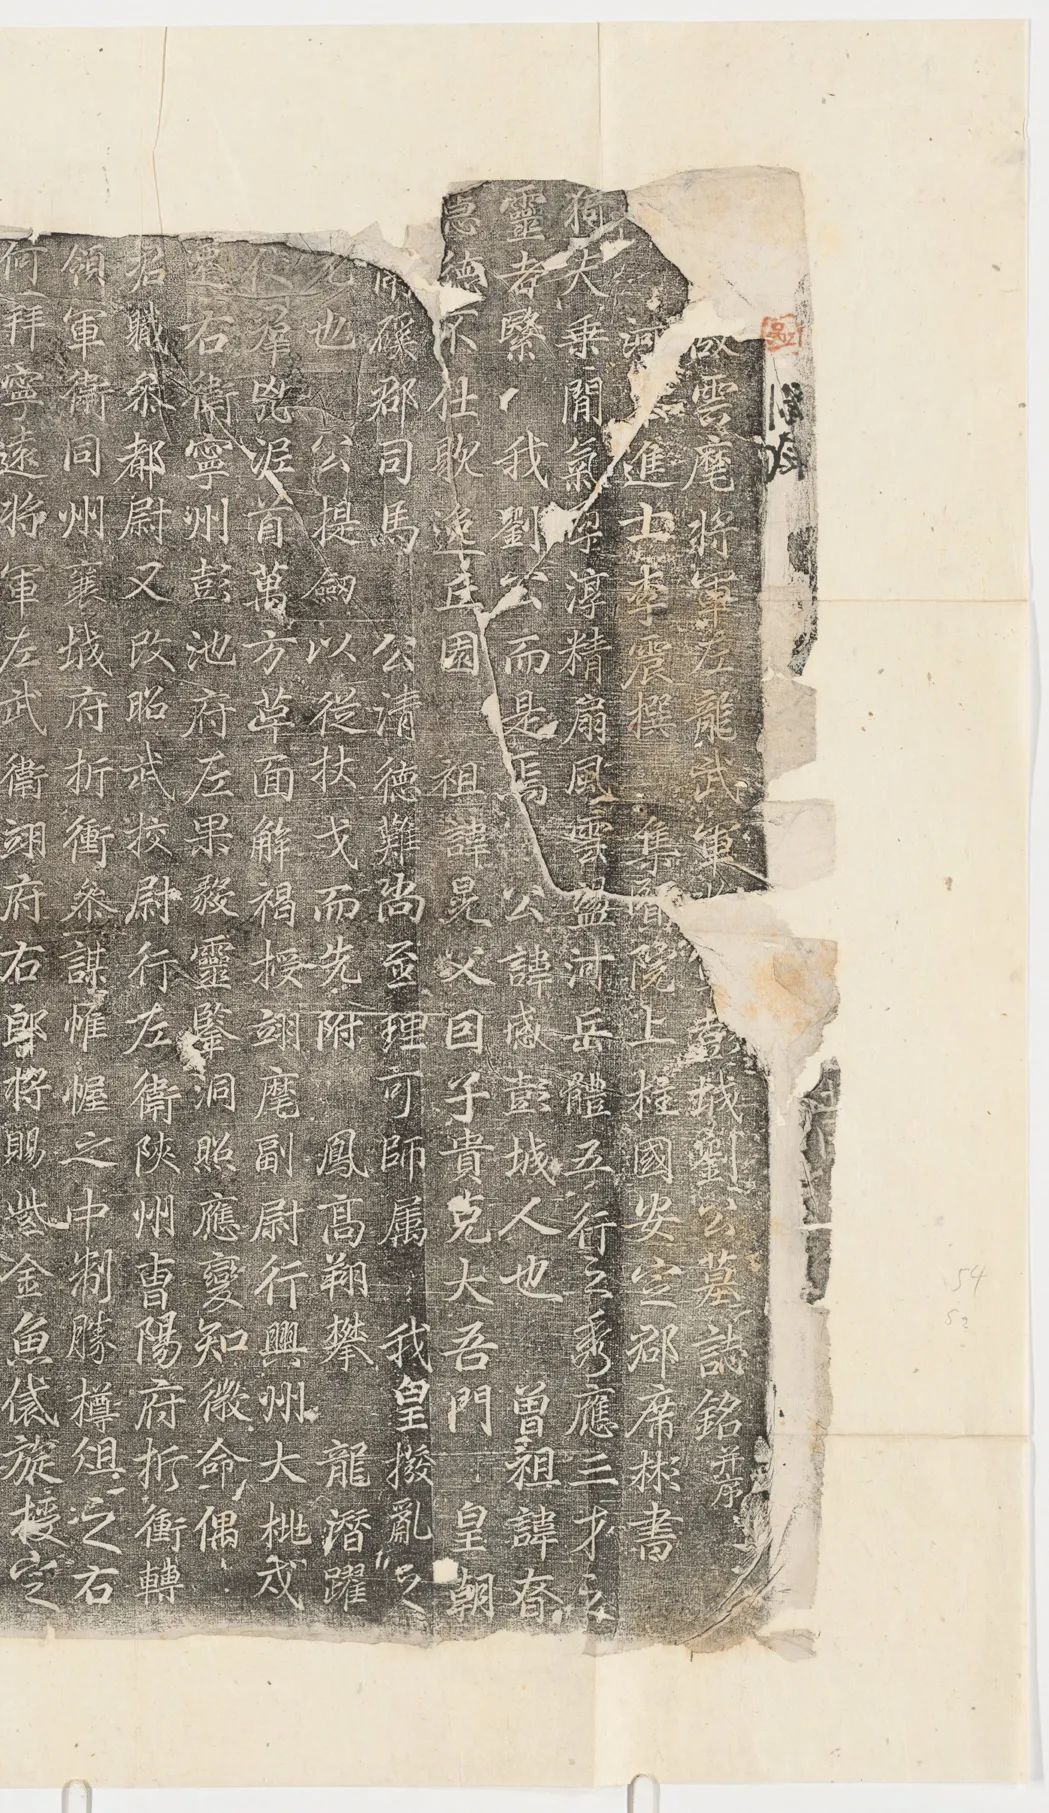 故雲麾將軍左龍武軍彭城劉公墓誌銘并序
河進士李震撰 集賢院上柱國安定郡席彬書
狗大乘閒氣孕淳精扇風雲盪河岳體五行之秀應三才之
靈者繄我劉公而是焉 公諱感彭城人也 曾祖諱奢
急德不仕歌逸丘園 祖諱晃父曰子貴克大吾門 皇朝
磎郡司馬 公清德難尚至理可師属 我皇撥亂之
也 公提劒以從扙戈而先附 鳳高翔攀 龍潛躍
羣兇泥首萬方革面解褐授翊麾副尉行興州大桃戍
遷右衛寧州彭池府左果毅靈鑒洞照應變知微命偶
君職叅都尉又改昭武校尉行左衛陝州曹陽府折衝轉
領軍衛同州襄城府折衝叅謀帷幄之中制勝樽俎之右
何拜寧遠將軍左武衛翊府右郎將賜紫金魚袋旋授定
54
52